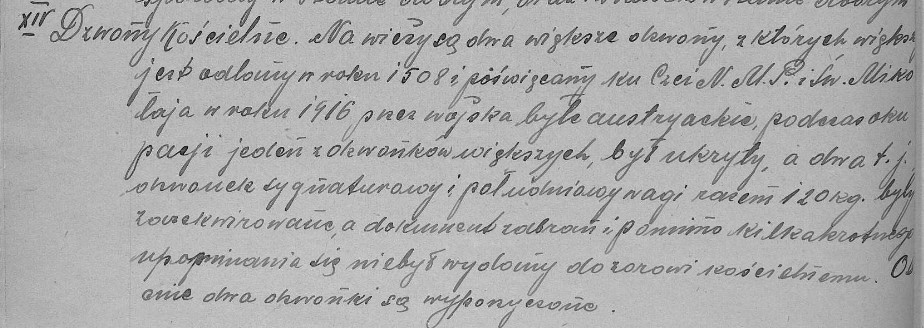 XIV Dzwony Kościelne. Na wieży są dwa większe dzwony, z których większ
jest odlany w roku 1508 i poświęcany ku Czci N. M. P. i Św. Miko
łaja w roku 1916 przez wojska byłe austryackie, podczas oku
pacji jeden z dzwonków większych, był ukryty, a dwa t. j.
dzwonek sygnaturowy i południowy wagi razem 120 kg. były
zarekwirowane, a dokument zabrań i pomimo kilkakrotnego
upominania się niebył wydany dozorowi kościelnemu. Ob
ecne dwa dzwonki są wypożyczone.